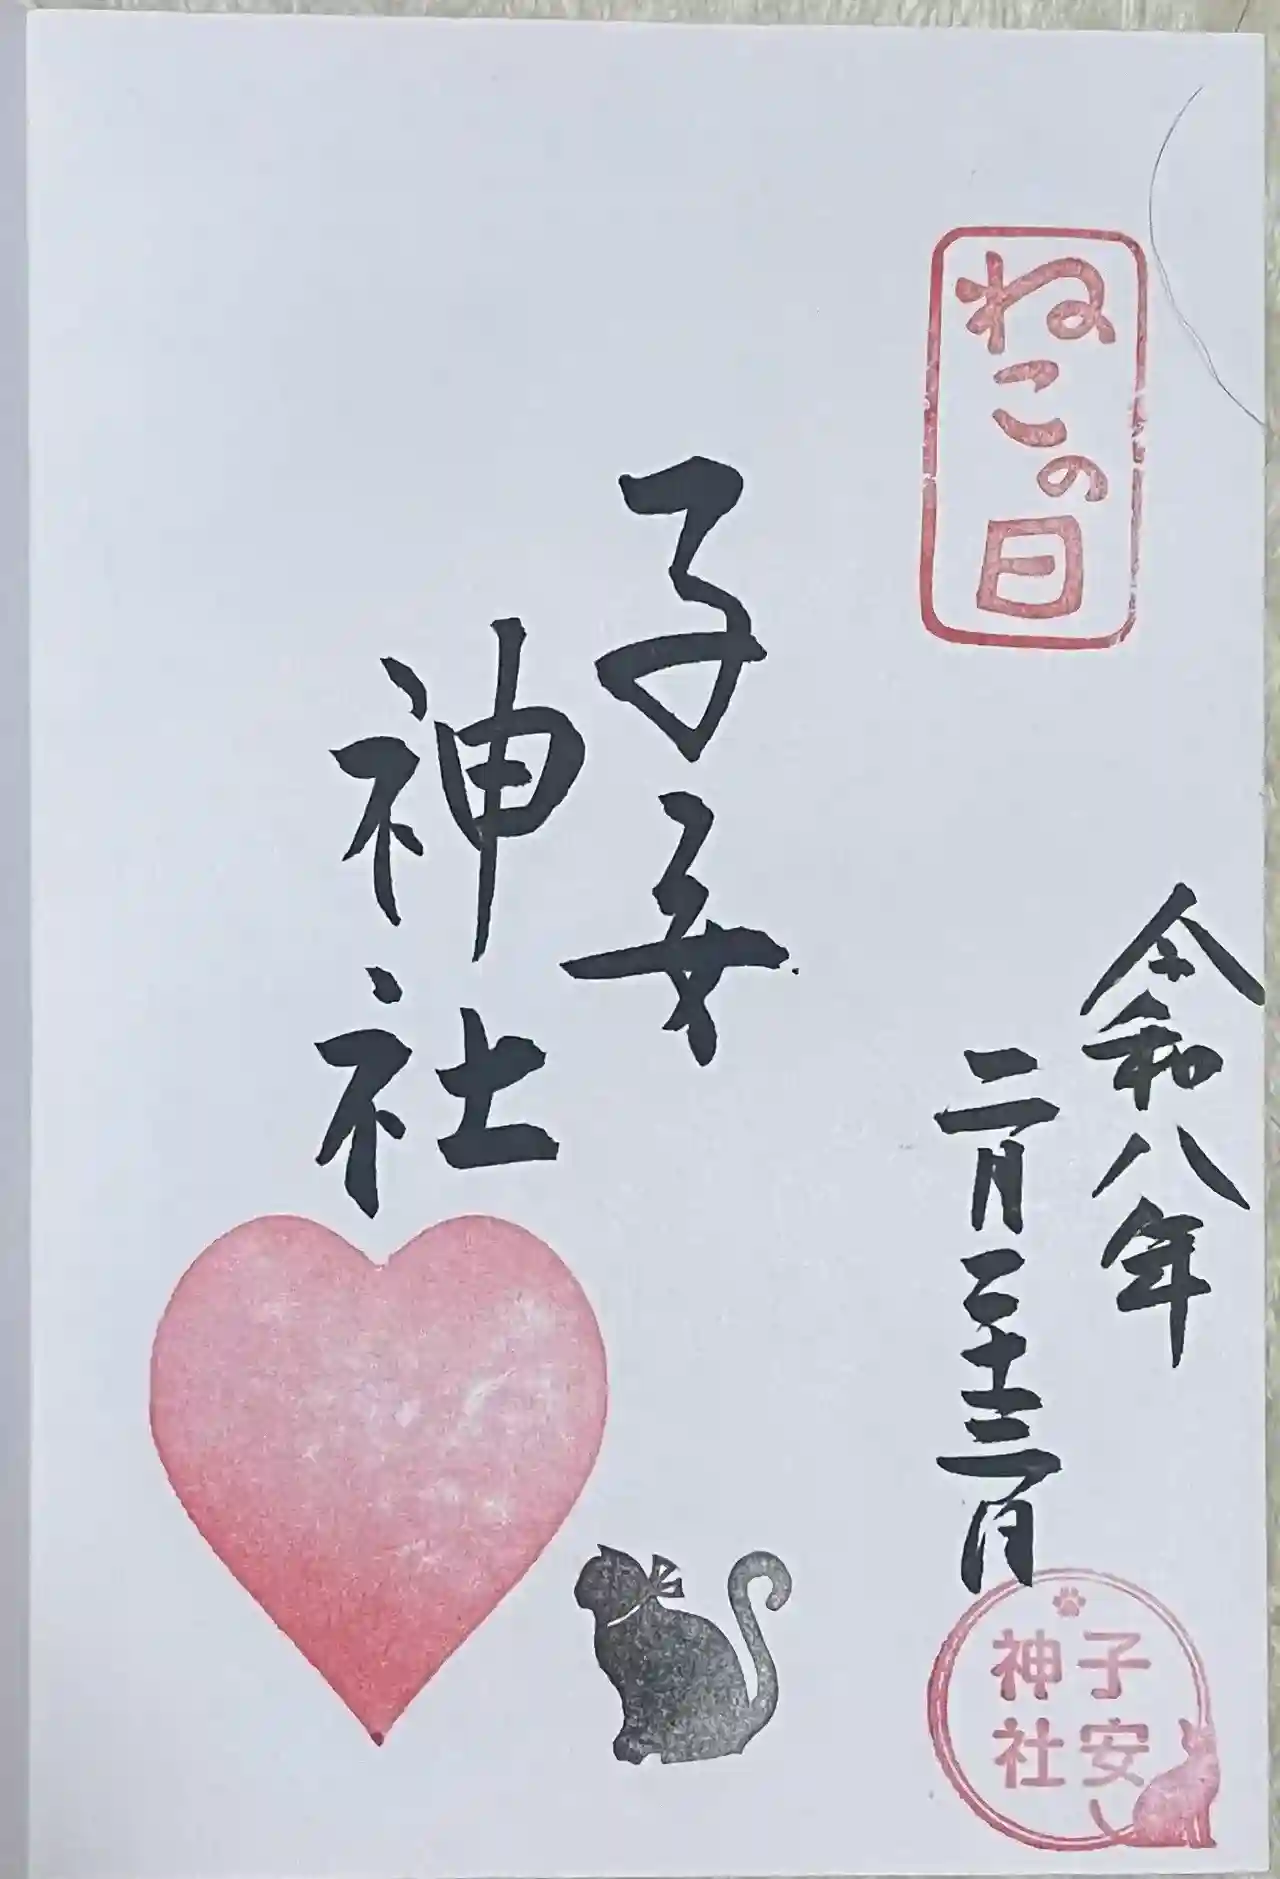 ねこの日
令和八年
二月二十三日
子安
神社
子安
神社